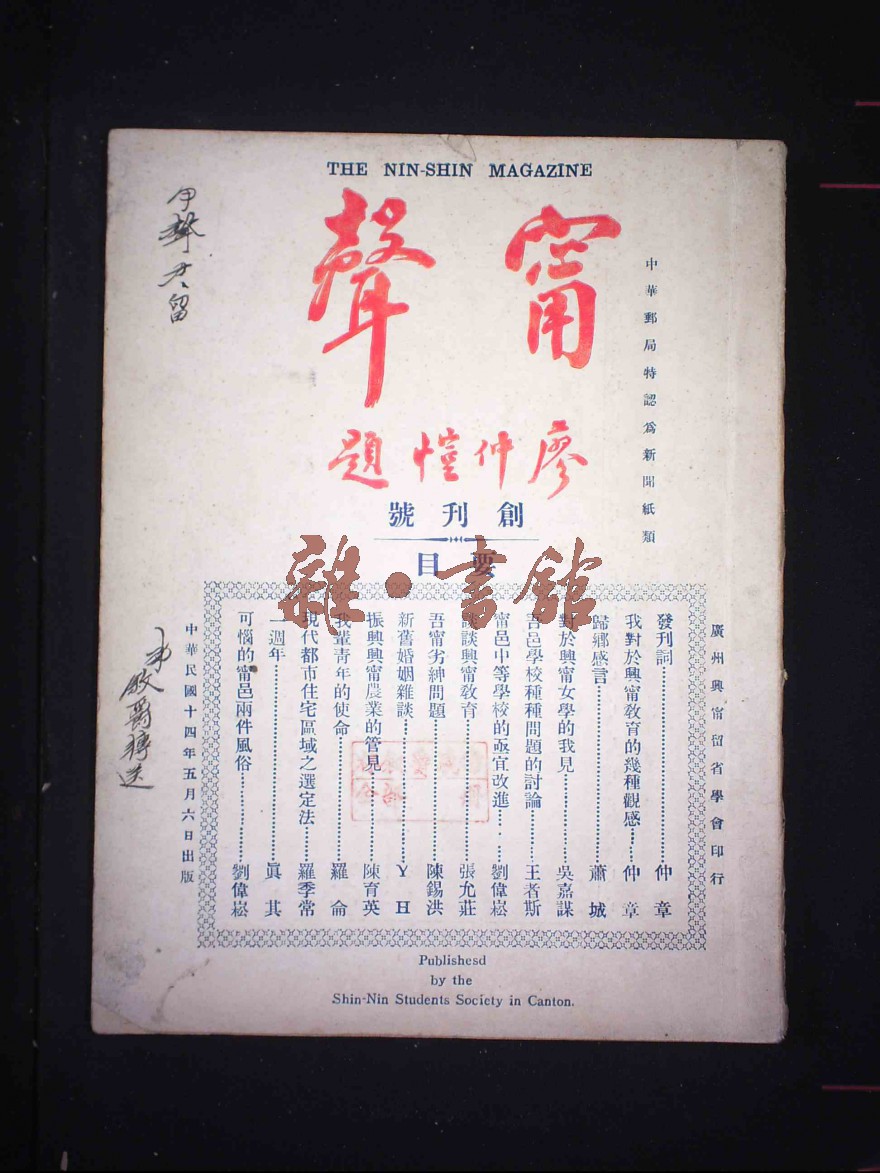 THE NIN-SHIN MAGAZINE
甯聲
廖仲愷題
中華郵局特認爲新聞紙類
創刊號
要目
廣州興甯留省學會印行
發刊詞……仲章
我對於興甯敎育的幾種觀感……仲章
歸鄉感言……蕭城
對於興甯女學的我見……吳嘉謀
吾邑學校種種問題的討論……王者斯
甯邑中等學校的亟宜改進……劉偉崧
談談興甯敎育……張允莊
吾甯劣紳問題……陳錫洪
新舊婚姻雜談……Y H
振興興甯農業的管見……陳育英
我輩靑年的使命……羅侖
現代都市住宅區域之選定法……羅季常
一週年……眞其
可惱的甯邑兩件風俗……劉偉崧
中華民國十四年五月六日出版
Publishesd
by the
Shin-Nin Students Society in Canton.
雜·書館